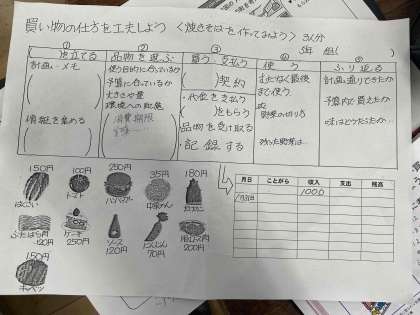 買い物の仕方を工夫しよう 〈焼きそばを作ってみよう〉 3人分
5年 組(
① ② ③ ④ ⑤
計画・メモ
情報を集める
品物を選ぶ
使う目的に合っているか
予算に合っているか
大きさや量
環境への配慮
消費期限
買う・支払う
契約
・代金を支払う
をもらう
品物を受け取る
・記録する
使う
むだなく最後まで使う
野菜の切り方
ふり返る
計画通りできたか
予算内で買えたか
150円
はくさい
100円
トマト
250円
ハンバーグ
35円
中華めん
180円
ぶたばら肉
120円
ケーキ
250円
ソース
120円
にんじん
70円
200円
150円
キャベツ
月日 ことがら 収入 支出 残高
1000